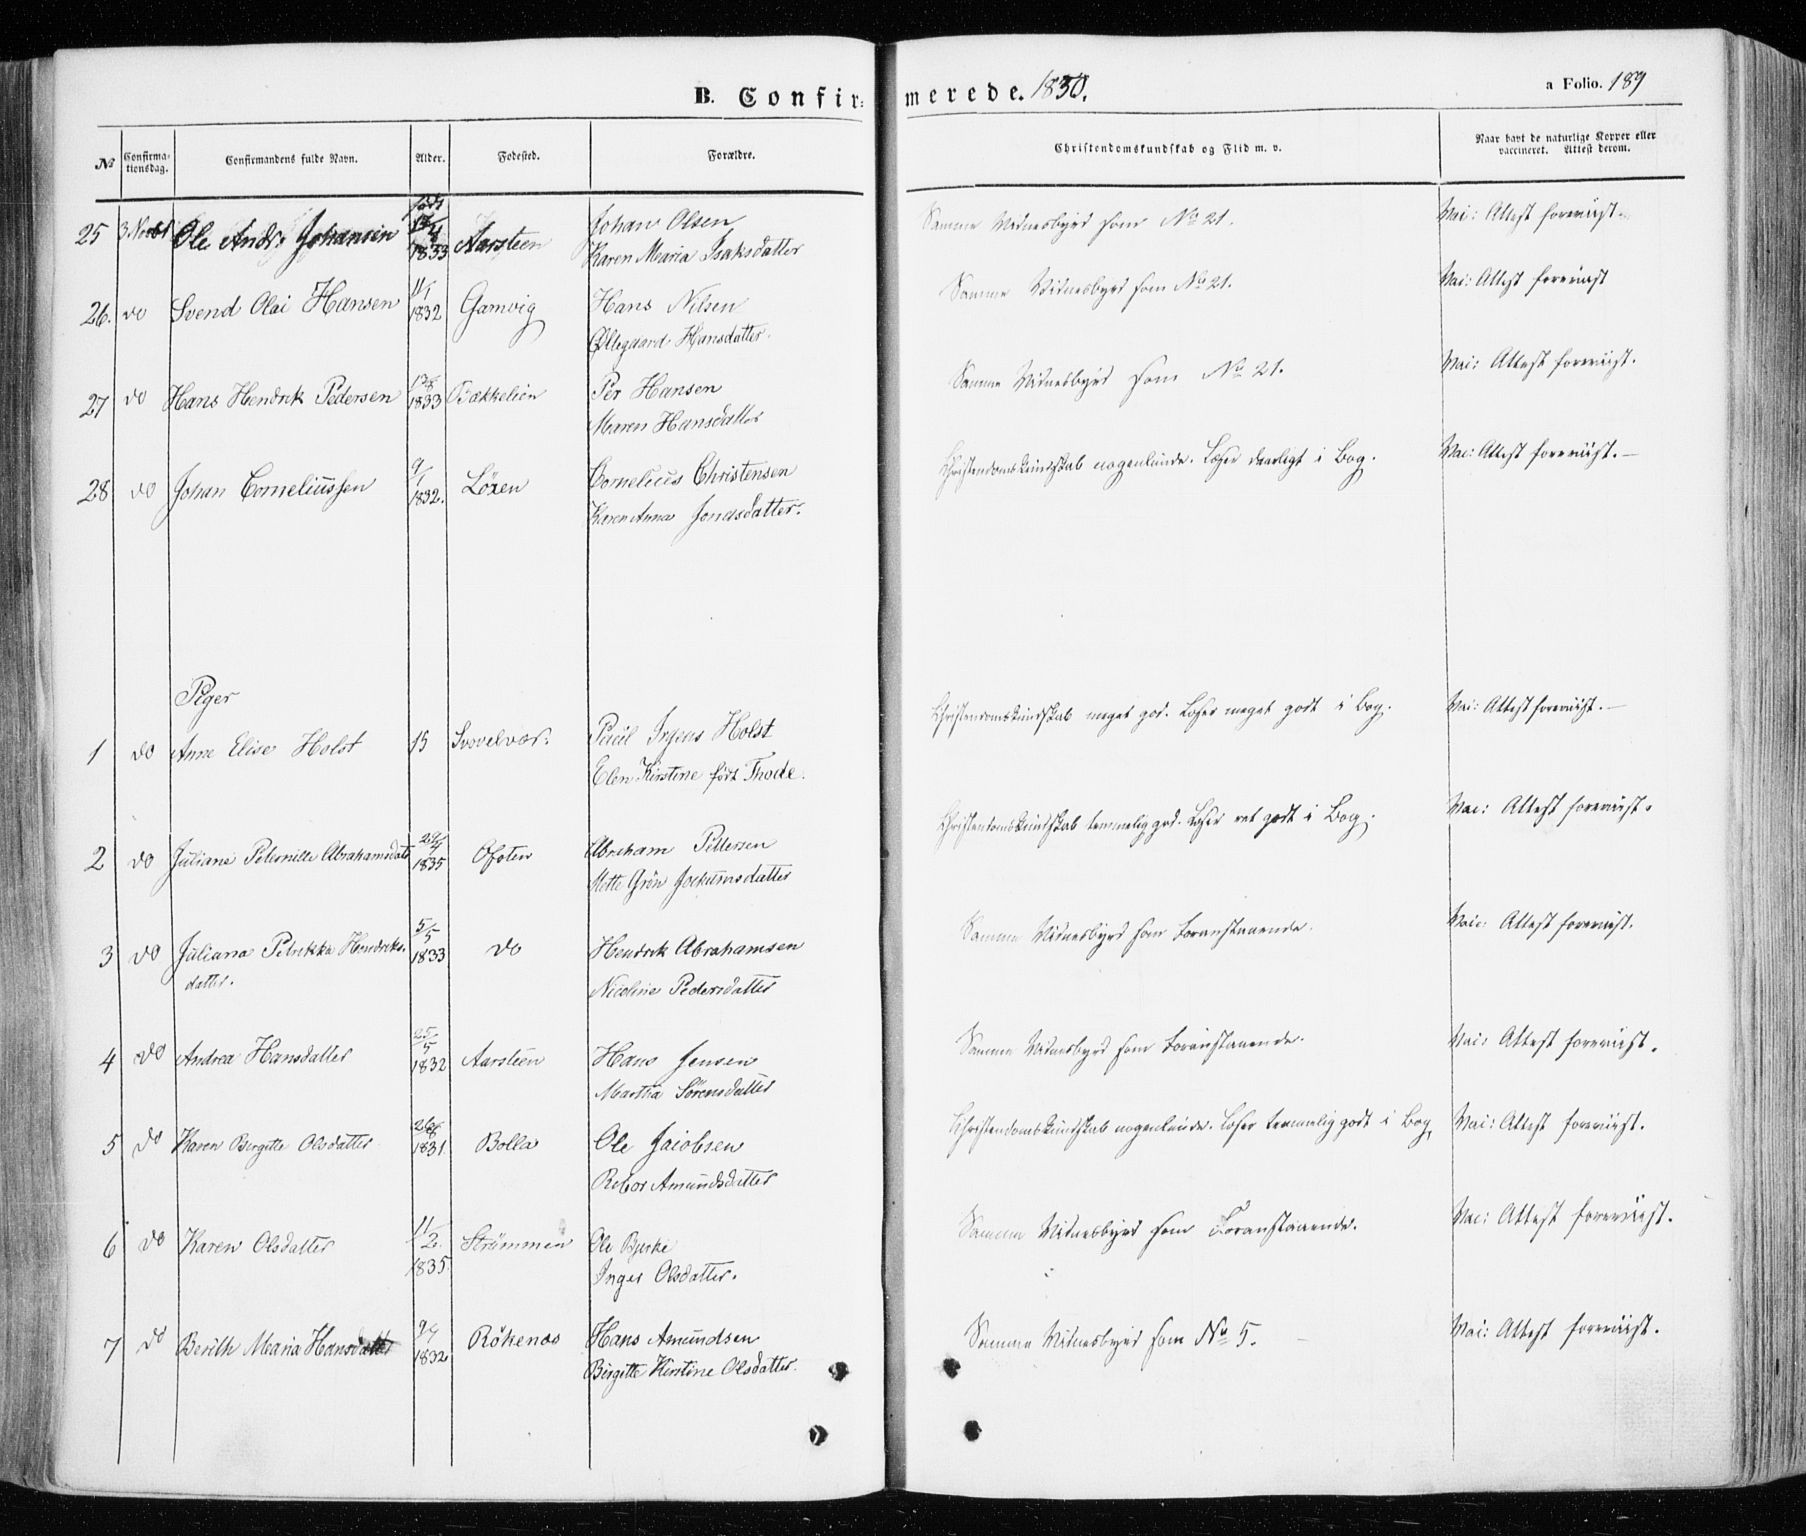 B. Confirmerede. 1850. a Folio. 189
№ Confirmationsdag. Confirmandens fulde Navn. Alder. Fødested. Forældre. Christendomskundskab og Flid m. v. Naar havt de naturlige Kopper eller vaccineret. Attest derom.
25 3 Novbr Ole Andr: Johansen født 1833 Aarsteen Johan Olsen Samme Vidnesbyrd som No 21. Vac: Attest foreviist.
Karen Maria Isaksdatter
26. do Svend Olai Hansen 11/1 1832 Gamvig Hans Nilsen Samme Vidnesbyrd som No 21. Vac: Attest foreviist
Øllegaard Hansdatter.
27 do Hans Hendrik Pedersen 1833 Bækkelien Per Hansen Samme Vidnesbyrd som No 21. Vac: Attest foreviist.
Maren Hansdatter
28 do Johan Corneliussen 9/1 1832. Löxen Cornelius Christensen Christendomskundskab nogenlunde. Læser daarligt i Bog. Vac: Attest foreviist.—
Karen Anna Jonasdatter.
Piger
1 do Anne Elise Holst 15 Svovelvær. Povel Irgens Holst Christendomskundskab meget god. Læser meget godt i Bog. Vac: Attest foreviist.—
Elen Kirstine født Thode.
2 do Juliane Peternille Abrahamsdatr 29/4 1835 Ofoten Abraham Pettersen Christendomskundskab temmelig god. Læser ret godt i Bog. Vac: Attest foreviist.
Mette Grön Jochumsdatter
3 do Juliana Petrikka Hendriks- 5/5 1833 do Hendrik Abrahamsen Samme Vidnesbyrd som Foranstaaende. Vac: Attest foreviist.
datter. Nicoline Pedersdatter
4 do Andrea Hansdatter 25/5 1832 Aarsteen Hans Jensen Samme Vidnesbyrd som Foranstaaende. Vac: Attest foreviist.
Martha Sörensdatter
5 do Karen Birgitte Olsdatter 26/8 1831 Bolla Ole Jacobsen Christendomskundskab nogenlunde. Læser temmelig godt i Bog. Vac: Attest foreviist.
Rebor Amundsdatter
6 do Karen Olsdatter 11/2. 1835. Strömmen Ole Bjerke Samme Vidnesbyrd som Foranstaaende. Vac: Attest foreviist.
Inger Olsdatter.
7 do Berith Maria Hansdatter 9/4 1832 Rökenæs Hans Amundsen Samme Vidnesbyrd som No 5. Vac: Attest foreviist.
Birgitte Kirstine Olsdatter.